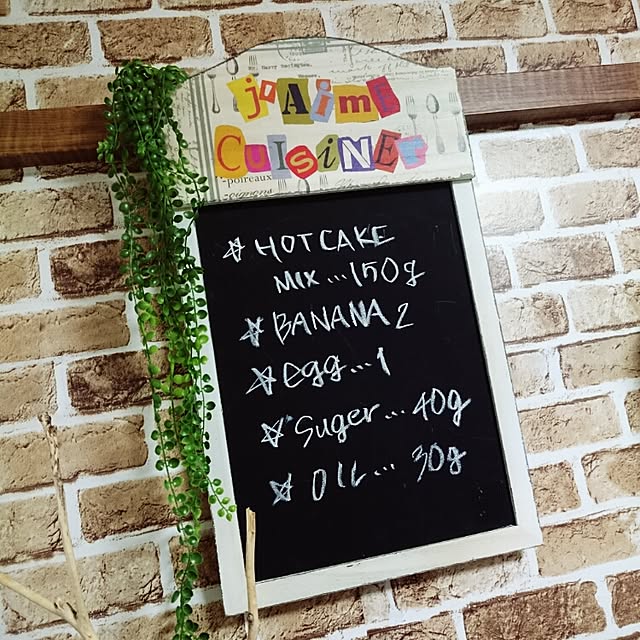 J'Aime
CuisiNEr
-poireaux
☆ HOTCAKE
MIX...150g
☆ BANANA 2
☆ egg...1
☆ Suger...40g
☆ OIL... 30g